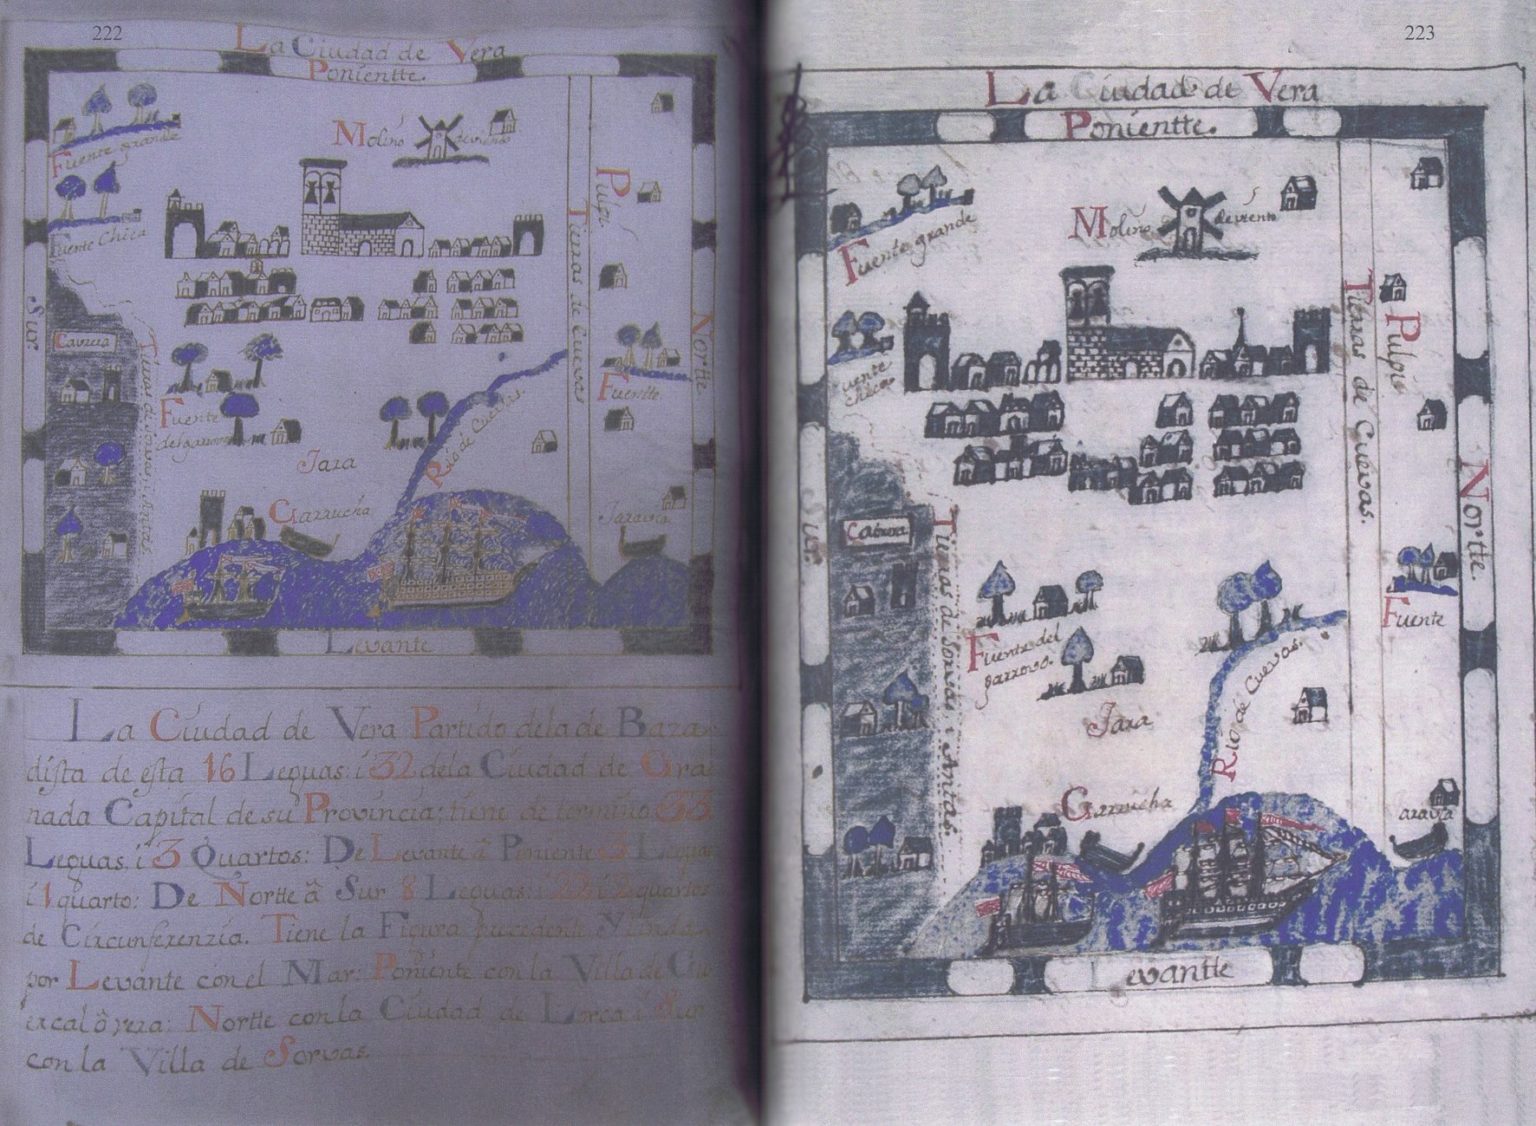 222
La Ciudad de Vera
Ponientte.
Fuente grande
Molino de viento
Fuente Chica
Pulpi
Tieras de Cuevas
Sur
Nortte
Cavrera
Tieras de Sorvas i Anttas
Fuente
del garrovo
Fuentte
Rio de Cuevas
Jara
Garrucha
Jaravia
Levante
La Ciudad de Vera Partido dela de Baza
dista de esta 16 Leguas i 32 dela Ciudad de Gra
nada Capital de su Provincia: tiene de termino 33
Leguas i 3 Quartos: De Levante â Poniente 3 Leguas
i 1 quarto: De Nortte â Sur 8 Leguas i quartos
de Circunferenzia. Tiene la Figura precedente. Y linda
por Levante con el Mar: Poniente con la Villa de Gu
ercal ôvera: Nortte con la Ciudad de Lorca i Sur
con la Villa de Sorvas.
223
La Ciudad de Vera
Ponientte.
Fuente grande
Molino de viento
Fuente
Chica
Tieras de Cuevas.
Pulpi
Sur.
Nortte.
Cabrera
Tieras de Sorvas i Anttas
Fuente del
garrovo.
Fuente
Rio de Cuevas.
Jara
Garrucha
aravia
Levantte